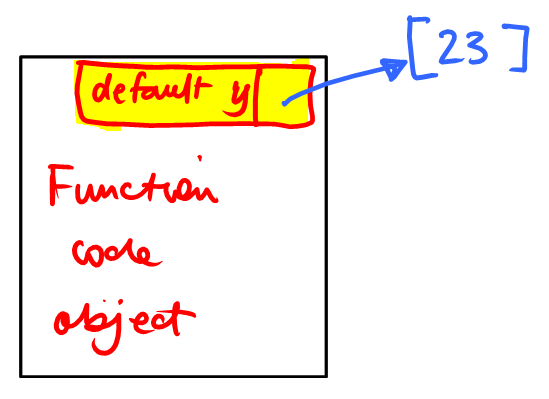 [23]
default y
Function
code
object